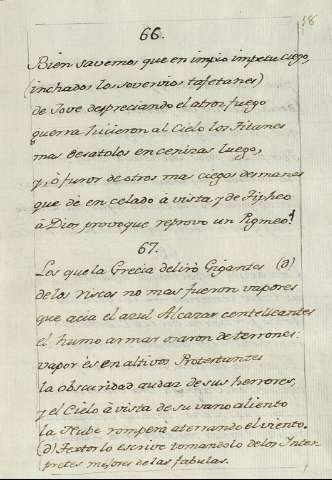 18
66.
Bien savemos que en impio impetu ciego,
(inchados los sovervios tafetanes)
de Jove despreciando el atroz fuego
guerra hicieron al Cielo los Titanes
mas desatolos en ceniza luego,
y, ò furor de otros mas ciegos desmanes
que de encelado à vista, y de Tipheo
à Dios provoque reprovo un Pigmeo!
67.
Los que la Grecia deliró Gigantes (d)
de los riscos no mas fueron vapores
que acia el azul Alcazar centelleantes
el humo armar osaron de terrones:
vapor és en altivos Protestantes
la obscuridad audaz de sus herrores,
y el Cielo à vista de su vano aliento
la Nube romperá aterrando el viento.
(d) Textor lo escrive tomandolo de los Inter-
pretes mejores de las fabulas.